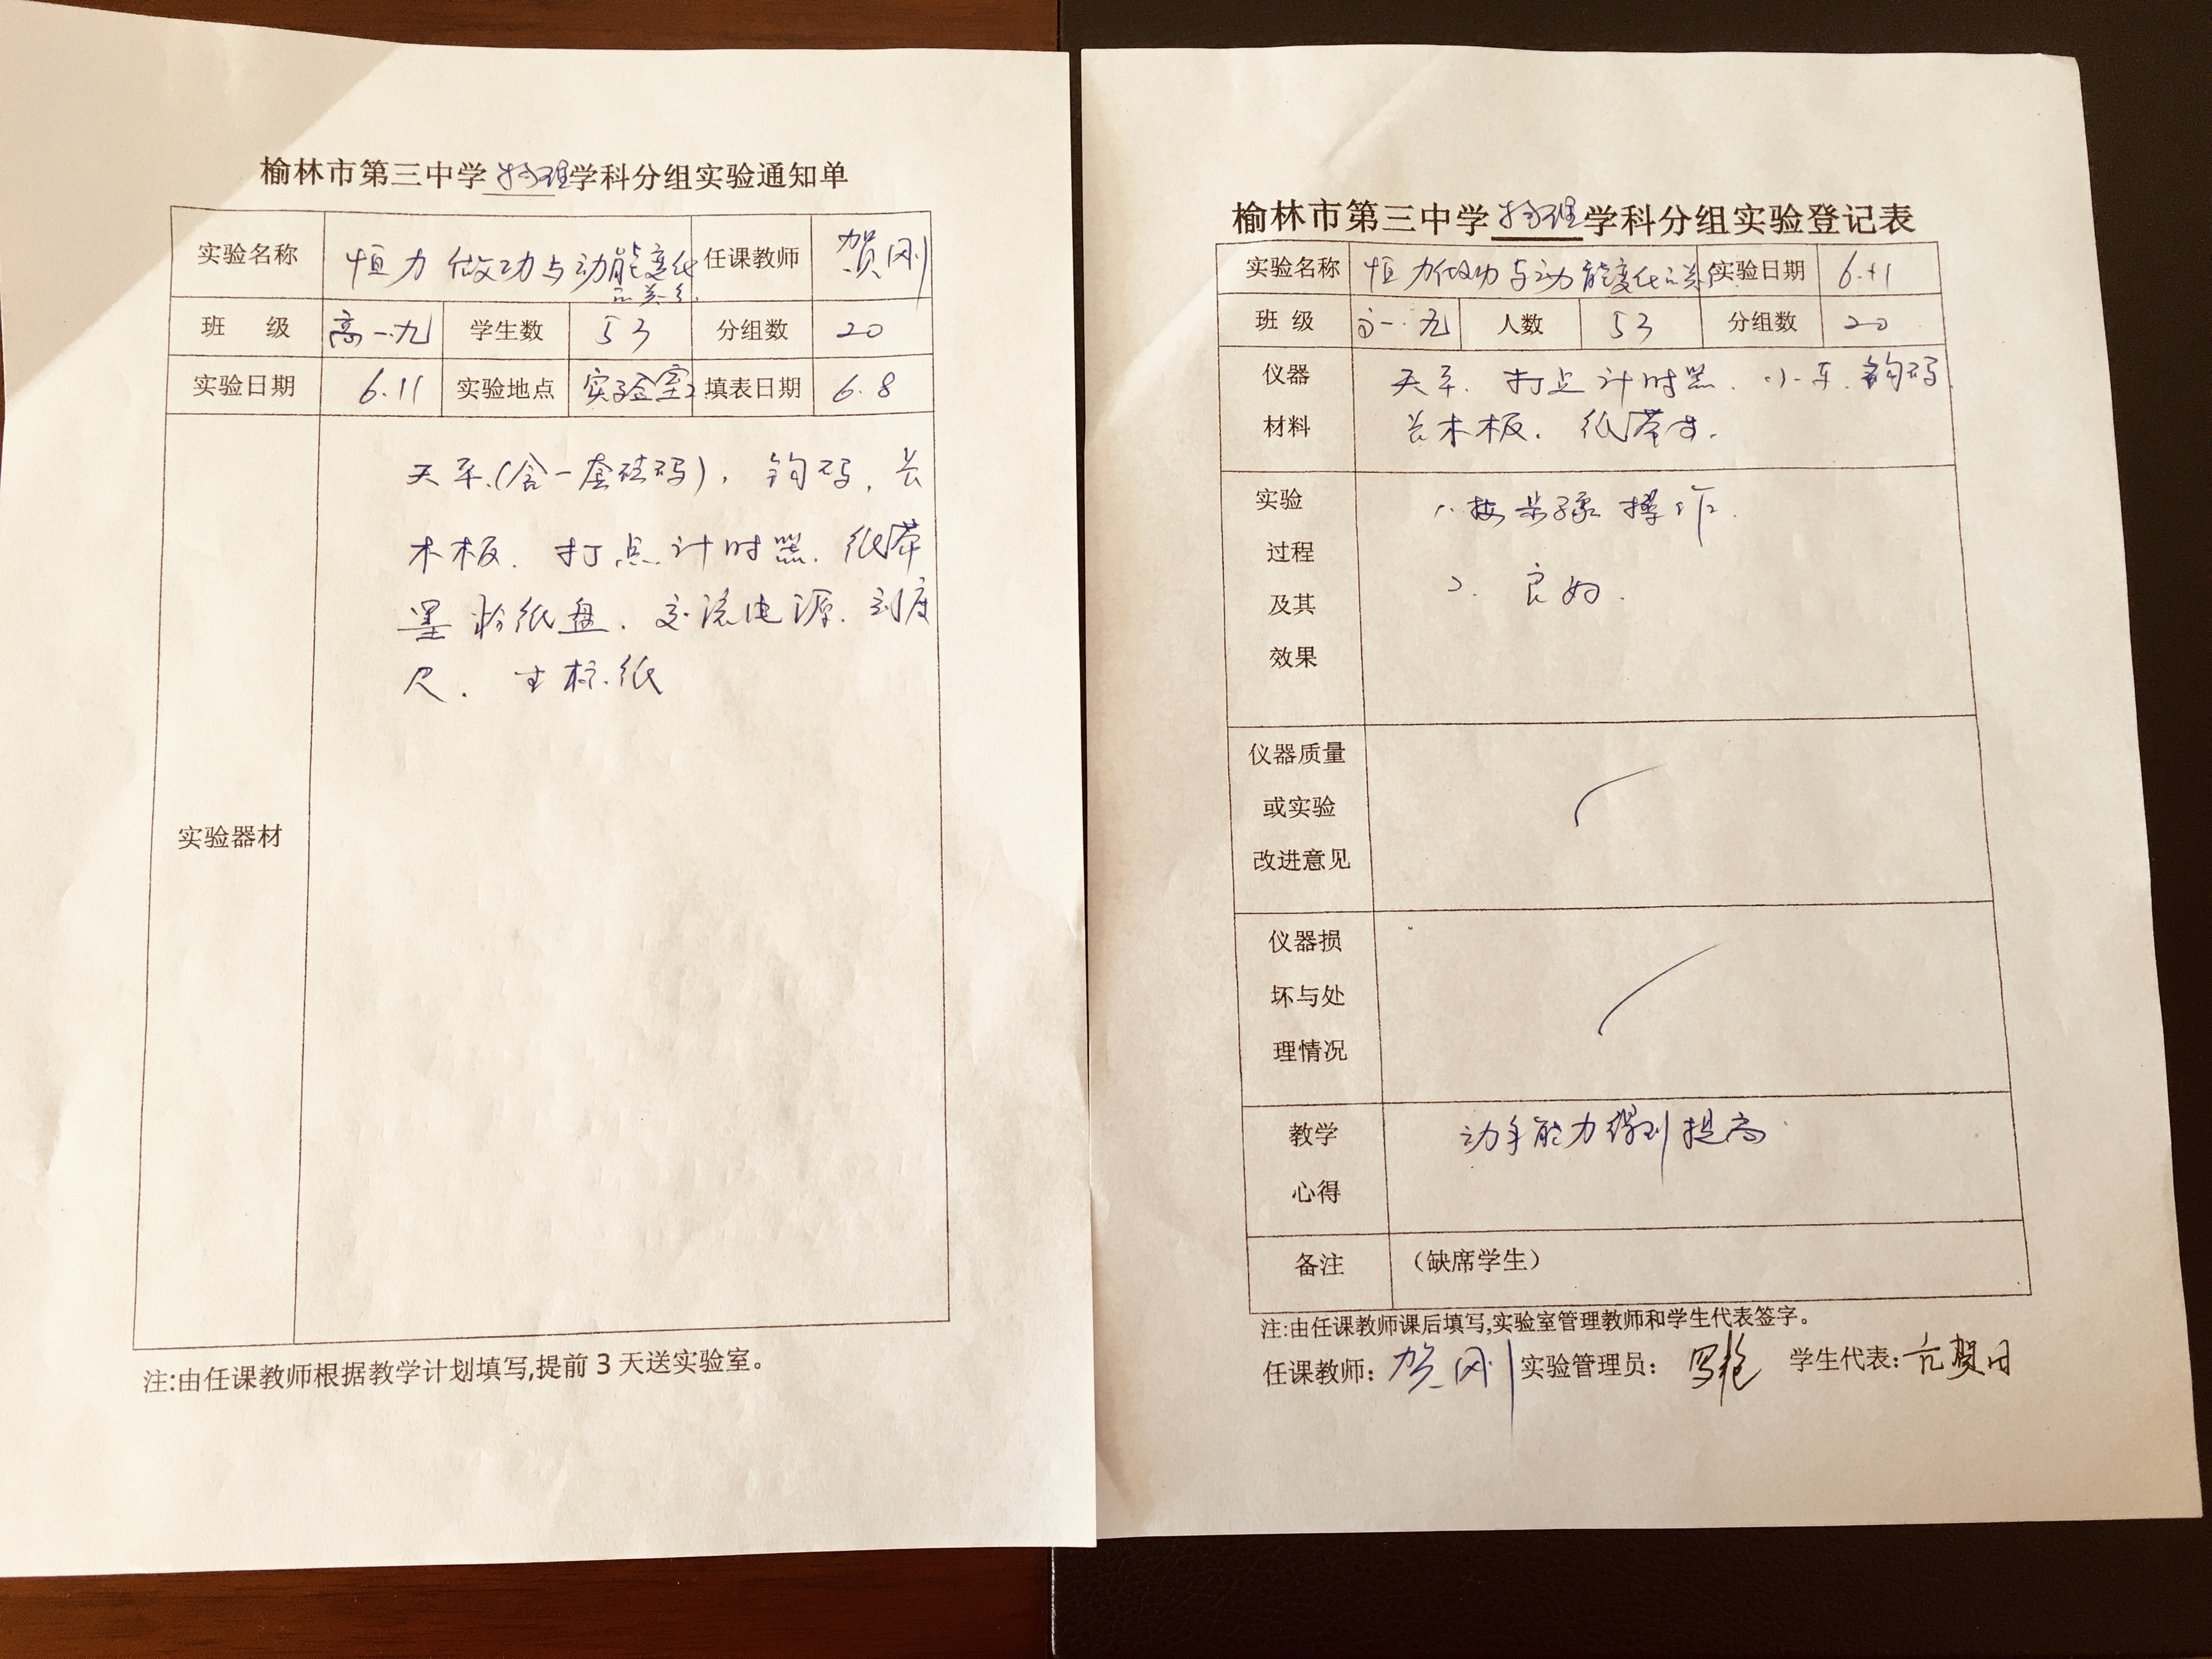 榆林市第三中学物理学科分组实验通知单
实验名称 恒力做功与动能变化的关系 任课教师 贺刚
班 级 高一.九 学生数 53 分组数 20
实验日期 6.11 实验地点 实验室2 填表日期 6.8
实验器材
天平(含一套砝码), 钩码, 长
木板. 打点计时器. 纸带
墨粉纸盘. 交流电源. 刻度
尺. 坐标纸
注:由任课教师根据教学计划填写,提前3天送实验室。
榆林市第三中学物理学科分组实验登记表
实验名称 恒力做功与动能变化的关系 实验日期 6.11
班 级 高一.九 人数 53 分组数 20
仪器 天平. 打点计时器. 小车. 钩码
材料 长木板. 纸带
实验 1. 按步骤操作.
过程
2. 良好.
及其
效果
仪器质量
或实验
改进意见
仪器损
坏与处
理情况
教学 动手能力得到提高
心得
备注 （缺席学生）
注:由任课教师课后填写,实验室管理教师和学生代表签字。
任课教师: 贺刚 实验管理员: 学生代表: